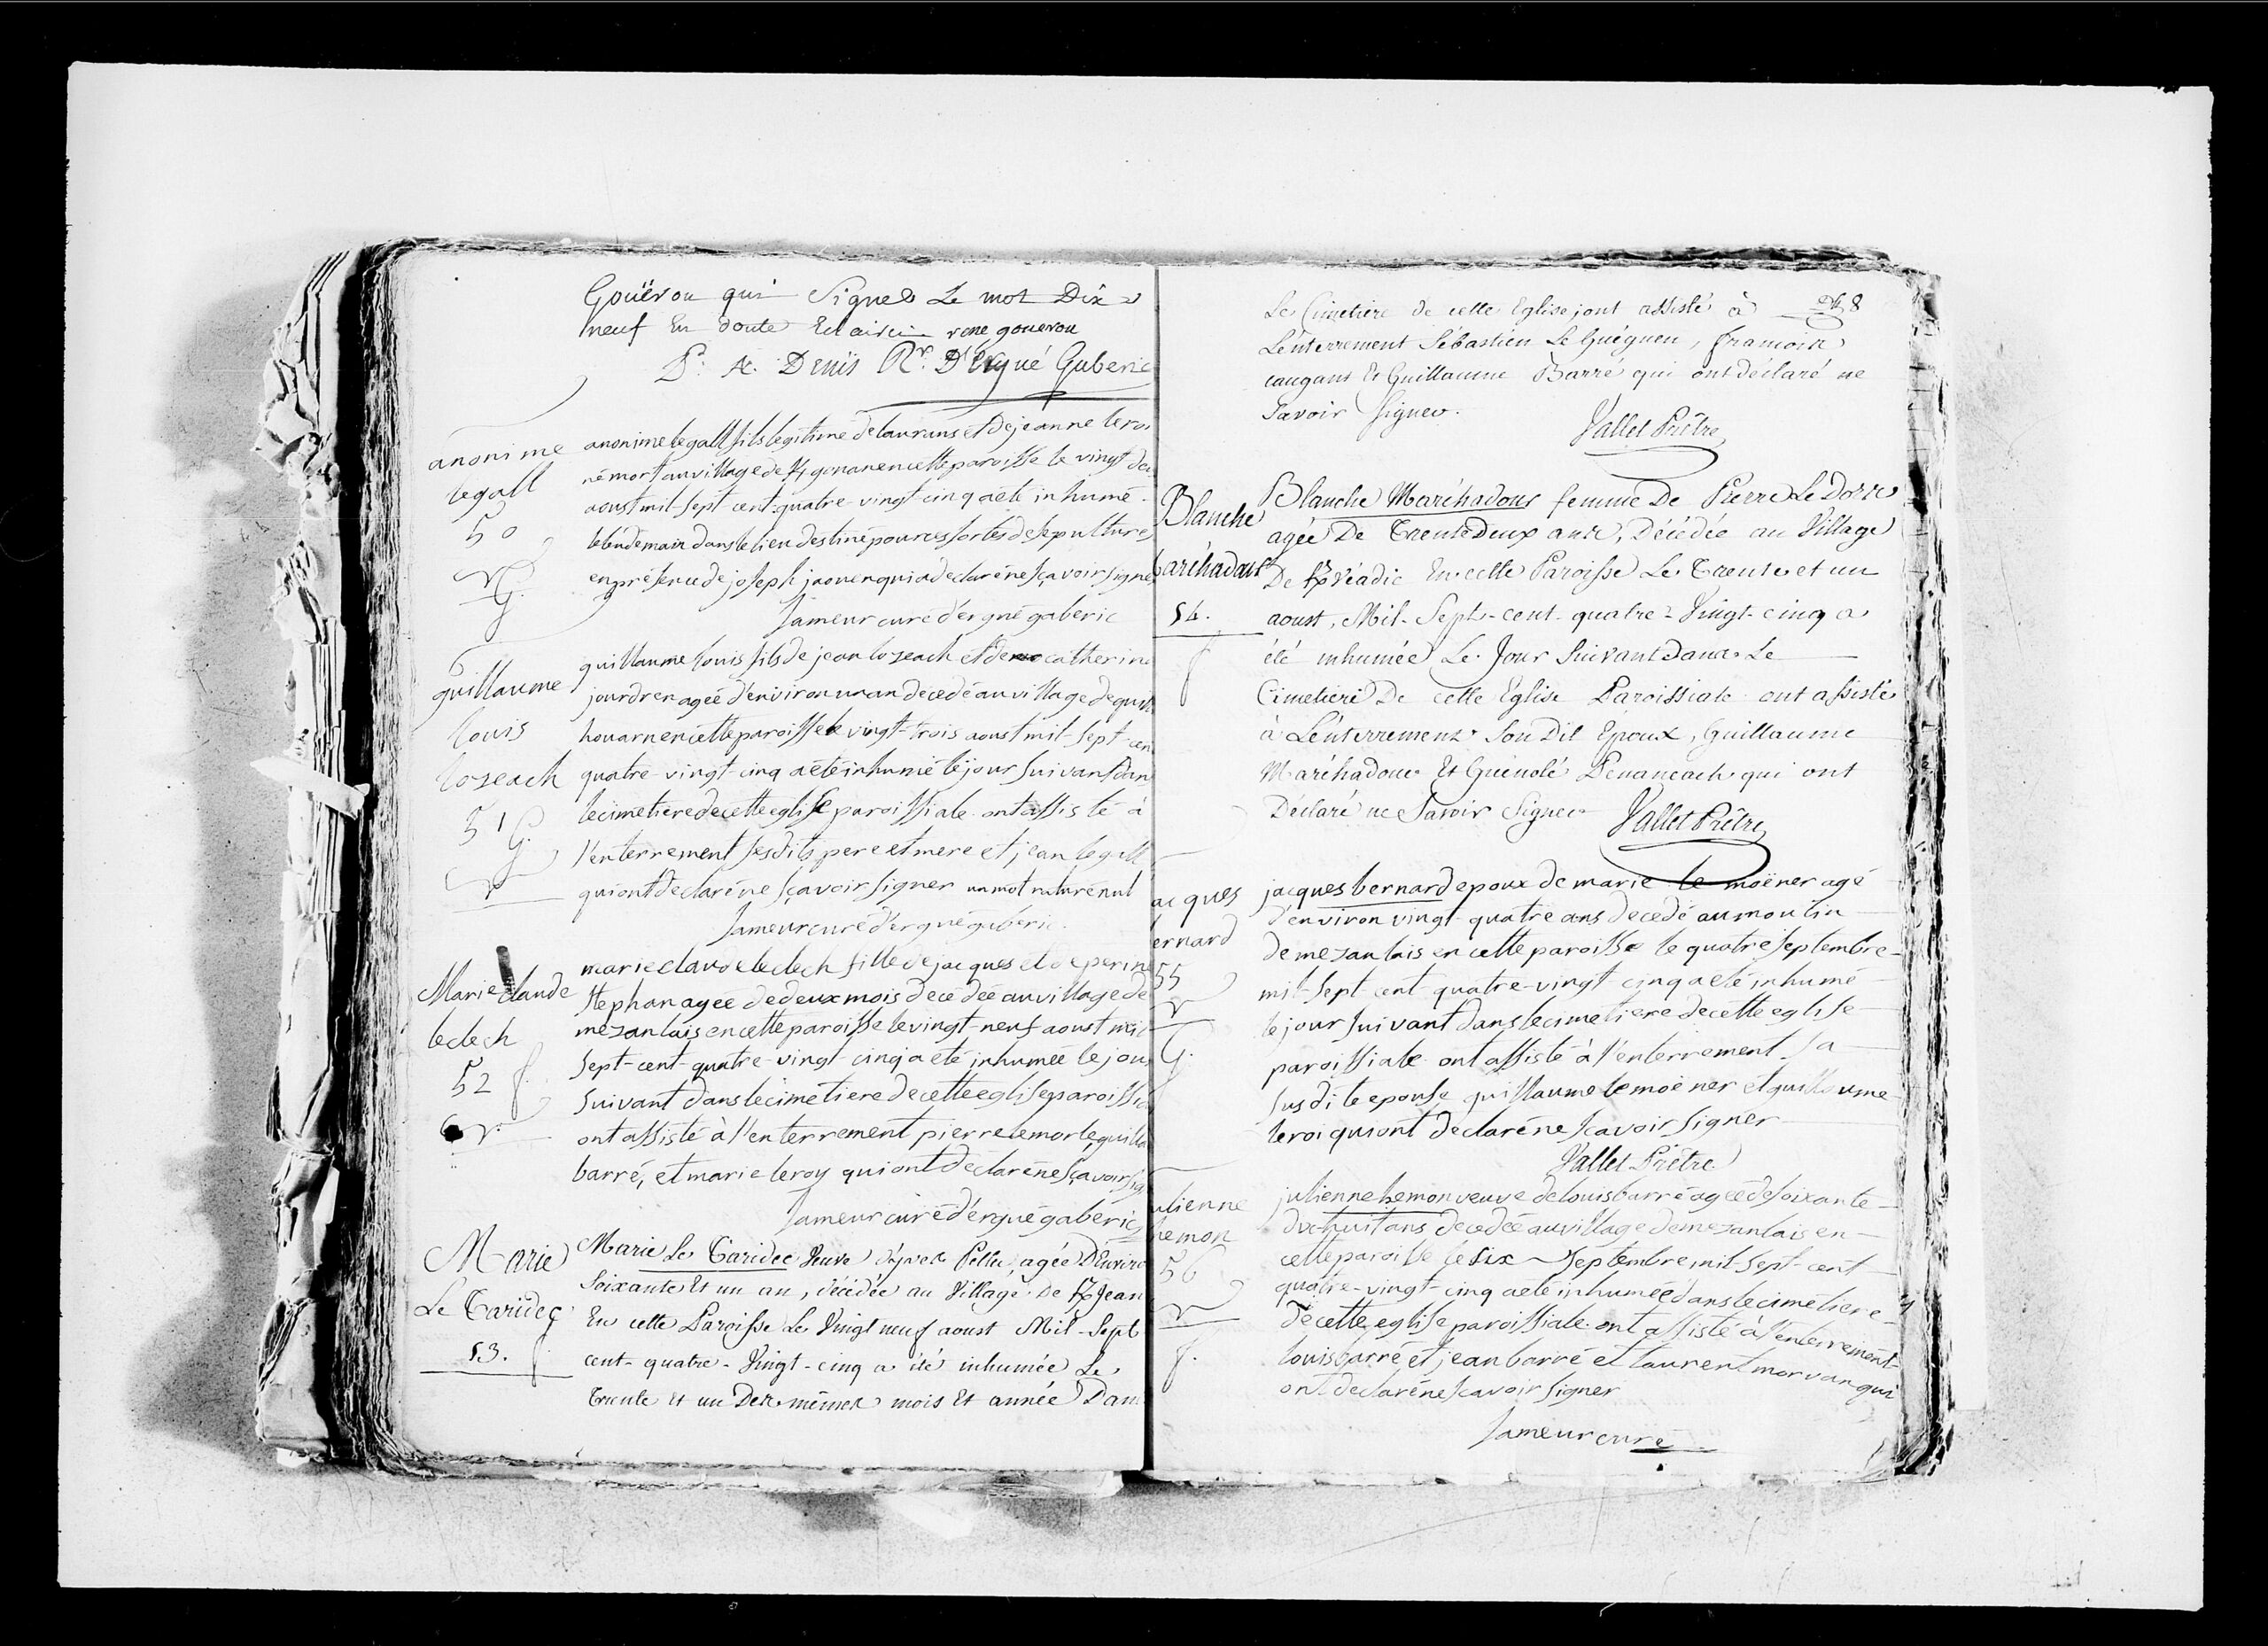 Gouërou qui Signe Le mot Dix
neuf En doute Eclairci rene gouerou
P. A. Denis Rr. D'Ergué Gaberic
anonime
legall
50
G.
anonime legall fils legitime de laurans et de jeanne leroi
né mort au village de en cette paroisse le vingt deu
aoust mil-sept cent-quatre-vingt-cinq a été inhumé
le lendemain dans le lieu destiné pour ces sortes de sepultures
en présence de joseph jaouen qui a declaré ne sçavoir signe
Jameur curé d'ergué gaberic
guillaume
louis
lozeach
51 G.
guillaume louis fils de jean lozeach et de catherine
jourdren ageé d'environ un an décédé au village de
houarn en cette paroisse le vingt-trois aoust mil-sept-cen
quatre-vingt-cinq a été inhumé le jour suivant dan
le cimetiere de cette eglise paroissiale ont assisté à
l'enterrement ses dits pere et mere et jean le gall
qui ont declaré ne sçavoir signer un mot raturé nul
Jameur curé d'ergué gaberic
Marie Claude
leclech
52 f.
marie claude leclech fille de jacques et de perin
stephan ageé de deux mois décédeé au village de
mezanlais en cette paroisse le vingt-neuf aoust mil
sept-cent-quatre-vingt-cinq a été inhumeé le jou
suivant dans le cimetiere de cette eglise paroissia
ont assisté à l'enterrement pierre lemorle, guilla
barré, et marie leroy qui ont déclaré ne sçavoir sig
Jameur curé d'ergué gaberic
Marie
Le Caridec
53. f
Marie Le Caridec Veuve d'yves agée D'Enviro
Soixante Et un an, décédée au Village de Jean
En cette Paroisse Le Vingt neuf aoust Mil-Sept
cent-quatre-Vingt-cinq a été inhumée Le
Trente Et un Des mêmes mois Et année Dans
8
Le Cimetiere de cette Eglise, ont assisté à
L'enterrement Sébastien Le Guéguen, francois
caugant Et Guillaume Barré qui ont déclaré ne
Savoir Signer.
Vallet Prêtre
Blanche
aréhadour
54.
f
Blanche Maréhadour femme De Pierre Le Dorre
agée De Trente Deux ans, Décédée au Village
De En cette Paroisse Le Trente et un
aoust, Mil-Sept-cent-quatre-Vingt-cinq a
été inhumée Le Jour Suivant Dans Le
Cimetiere De cette Eglise Paroissiale ont assisté
à L'enterrement Son Dit Epoux, Guillaume
Maréhadour Et Guénolé Penanéach qui ont
Déclaré ne Savoir Signer Vallet Prêtre
acques
ernard
55
G.
jacques bernard epoux de marie le moëner agé
d'environ vingt-quatre ans décedé au moulin
de mezanlais en cette paroisse le quatre septembre
mil-sept cent quatre-vingt-cinq a été inhumé
le jour suivant dans le cimetiere de cette eglise
paroissiale ont assisté à l'enterrement sa
sus dite epouse guillaume le moëner et guillaume
leroi qui ont declaré ne scavoir signer
Vallet Prêtre
ulienne
hemon
56
f.
julienne hemon veuve de louis barré ageé de soixante
dix-huit ans decedeé au village de mezanlais en
cette paroisse le six septembre mil-sept-cent
quatre-vingt-cinq a été inhumeé dans le cimetiere
de cette eglise paroissiale ont assisté à l'enterrement
louis barré et jean barré et laurent morvan qui
ont declaré ne scavoir signer
Jameur curé